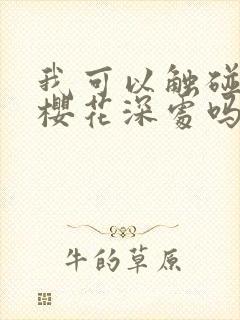 我可以触碰
樱花深处吗
牛的草原